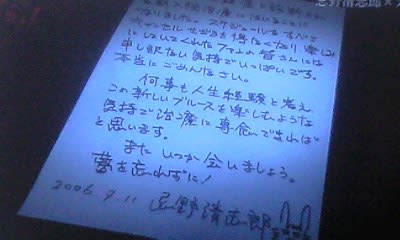 忌野清志郎
入院治療
なりました。スケジュールをすべて
キャンセルせざるを得なくなり楽しみ
にしていてくれたファンの皆さんには
申し訳ない気持でいっぱいです。
本当にごめんなさい。
何事も人生経験と考え、
この新しいブルースを楽しむような
気持で治療に専念できれば
と思います。
またいつか会いましょう。
夢を忘れずに!
2006.7.11 忌野清志郎